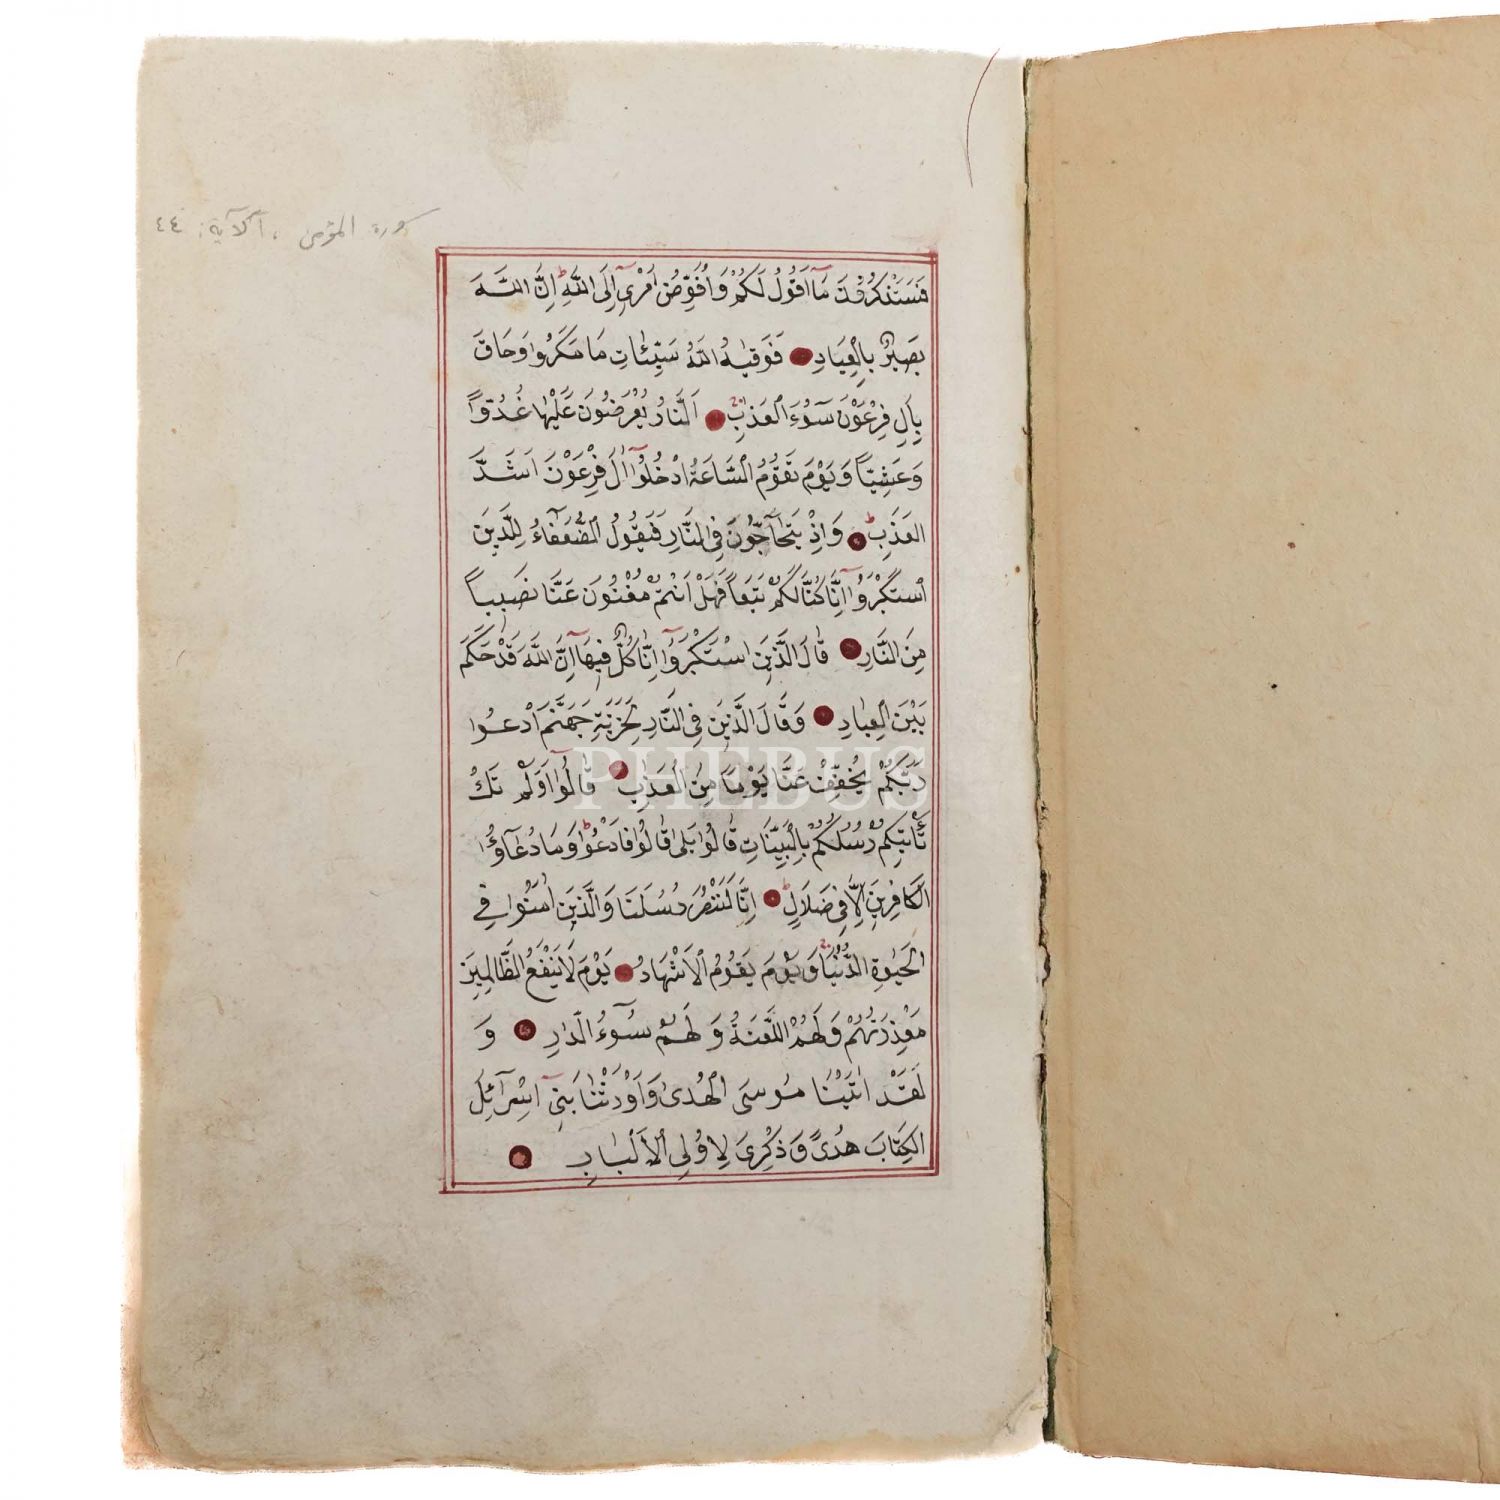 سورة المؤمن ، الآية: ٤٤
فَسَتَذْكُرُونَ مَٓا اَقُولُ لَكُمْ وَاُفَوِّضُ اَمْرٖٓي اِلَى اللّٰهِؕ اِنَّ اللّٰهَ
بَصٖيرٌ بِالْعِبَادِ فَوَقٰيهُ اللّٰهُ سَيِّـَٔاتِ مَا مَكَرُوا وَحَاقَ
بِاٰلِ فِرْعَوْنَ سُٓوءُ الْعَذَابِ اَلنَّارُ يُعْرَضُونَ عَلَيْهَا غُدُوًّا
وَعَشِيًّا وَيَوْمَ تَقُومُ السَّاعَةُ اَدْخِلُٓوا اٰلَ فِرْعَوْنَ اَشَدَّ
الْعَذَابِ وَاِذْ يَتَحَٓاجُّونَ فِي النَّارِ فَيَقُولُ الضُّعَفٰٓؤُ لِلَّذٖينَ
اسْتَكْبَرُٓوا اِنَّا كُنَّا لَكُمْ تَبَعًا فَهَلْ اَنْتُمْ مُغْنُونَ عَنَّا نَصٖيبًا
مِنَ النَّارِ قَالَ الَّذٖينَ اسْتَكْبَرُٓوا اِنَّا كُلٌّ فٖيهَٓا اِنَّ اللّٰهَ قَدْ حَكَمَ
بَيْنَ الْعِبَادِ وَقَالَ الَّذٖينَ فِي النَّارِ لِخَزَنَةِ جَهَنَّمَ ادْعُوا
رَبَّكُمْ يُخَفِّفْ عَنَّا يَوْمًا مِنَ الْعَذَابِ قَالُٓوا اَوَلَمْ تَكُ
تَأْتٖيكُمْ رُسُلُكُمْ بِالْبَيِّنَاتِ قَالُوا بَلٰى قَالُوا فَادْعُوا وَمَا دُعَٓاؤُا
الْكَافِرٖينَ اِلَّا فٖي ضَلَالٍ اِنَّا لَنَنْصُرُ رُسُلَنَا وَالَّذٖينَ اٰمَنُوا فِي
الْحَيٰوةِ الدُّنْيَا وَيَوْمَ يَقُومُ الْاَشْهَادُ يَوْمَ لَا يَنْفَعُ الظَّالِمٖينَ
مَعْذِرَتُهُمْ وَلَهُمُ اللَّعْنَةُ وَلَهُمْ سُٓوءُ الدَّارِ وَ
لَقَدْ اٰتَيْنَا مُوسَى الْهُدٰى وَاَوْرَثْنَا بَنٖٓي اِسْرَٓائٖلَ
الْكِتَابَ هُدًى وَذِكْرٰى لِاُولِي الْاَلْبَابِ
PHEBUS